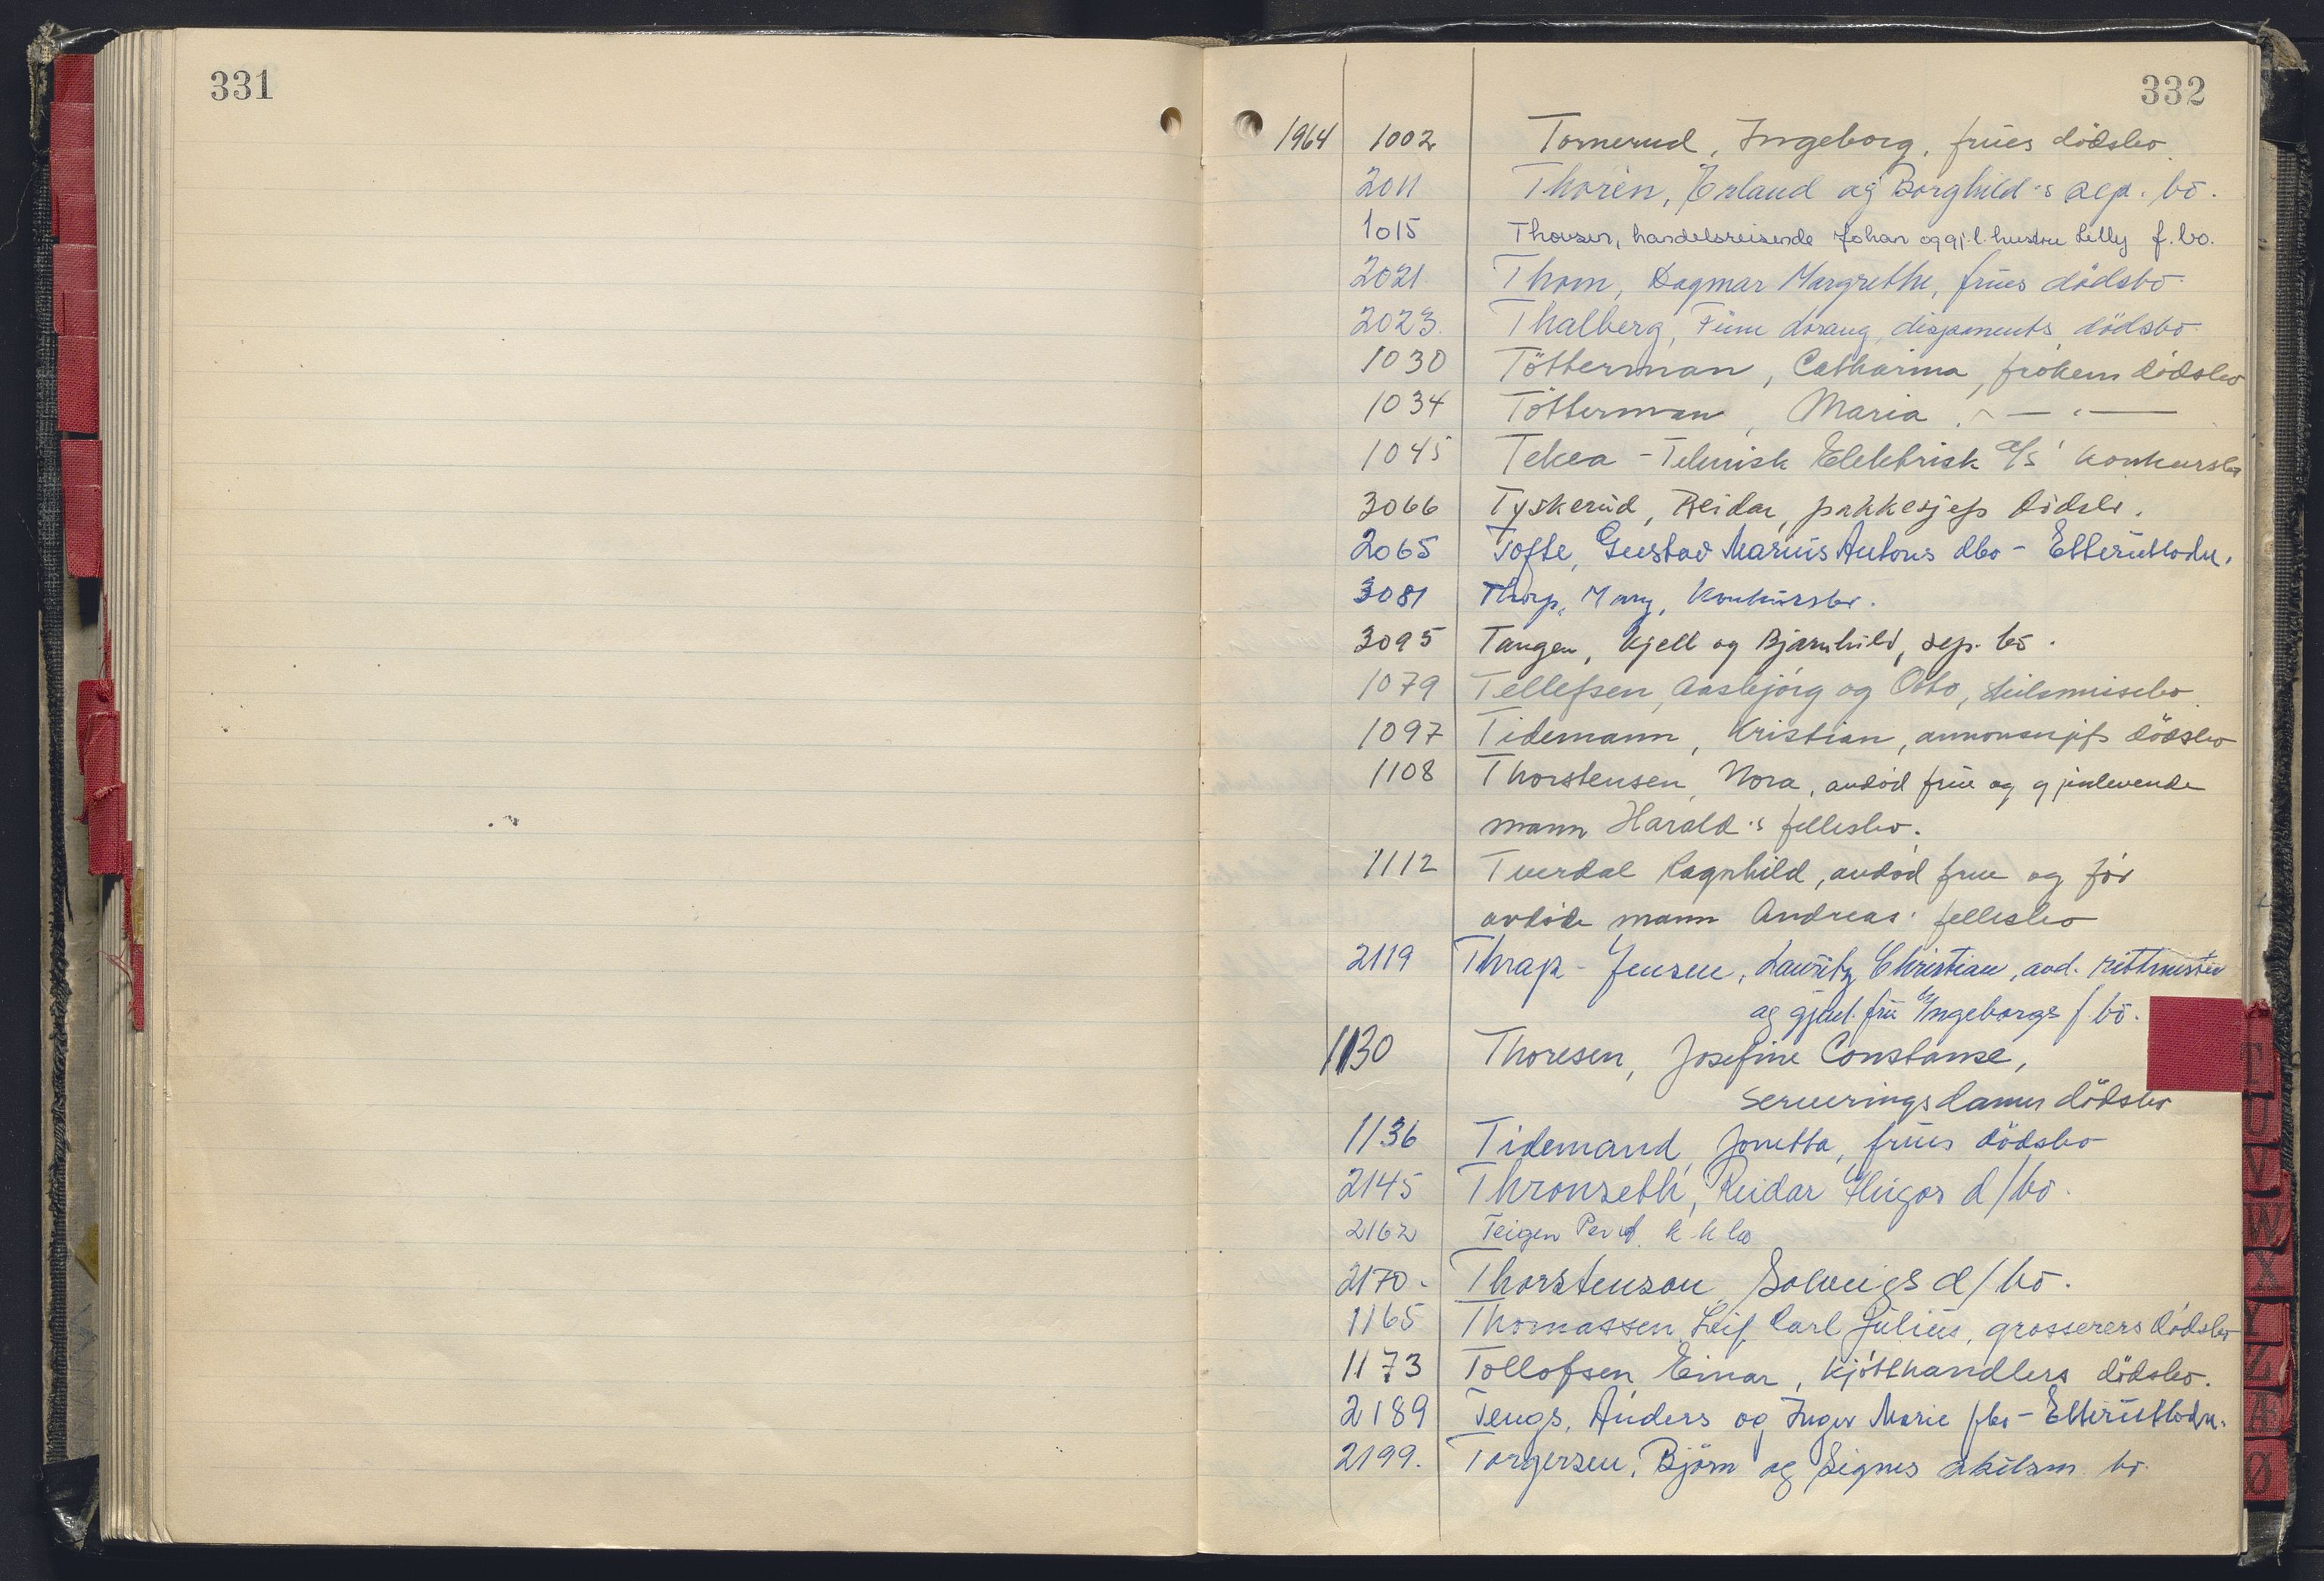 331
332
1964 1002 Tornerud, Ingeborg, frues dödsbo
2011 Thorèn, Erland og Borghild's sep. bo.
1015 Thovsen, handelsreisende Johan og gj.l. hustru Lilly f.bo.
2021. Thom, Dagmar Margrethe, frues dödsbo
2023. Thalberg, Finn disponents dödsbo
1030 Tötterman, Catharina, frökens dödsbo
1034 Tötterman, Maria, — " —
1045 Tekea - Teknisk Elektrisk A/S' konkursbo
3066 Tyskerud, Reidar, pakkesjefs dödsbo.
2065 Tofte, Gustav Marius Antons dbo - Etterutlodn.
3081 Thorp, Mary, Konkursbo.
3095 Tangen, Kjell og Bjarnhild, sep. bo.
1079 Tellefsen, Aasbjörg og Otto, skilsmissebo.
1097 Tidemann, Kristian, annonsesjefs dödsbo
1108 Thorstensen, Nora, avdöd frue og gjenlevende
mann Harald's fellesbo.
1112 Tverdal Ragnhild, avdöd frue og för
avdöde mann Andreas' fellesbo
2119 Thrap-Jensen, Lauritz Christian, avd. rittmester
og gjenl. frue Ingeborgs f.bo.
1130 Thoresen, Josefine Constanse,
Serveringsdames dödsbo
1136 Tidemand, Jonetta, frues dödsbo
2145 Thronseth, Reidar Hugos d/bo.
2162 Teigen Per k.k bo
2170. Thorstenson, Solveigs d/bo.
1165 Thomassen, Leif Carl Julius, grosserers dödsbo
1173 Tollofsen, Einar, kjötthandlers dödsbo.
2189 Tengs, Anders og Inger Marie fbo - Etterutlodn.
2199. Torgersen, Björn og Signes skilsm. bo.
T
U
V
W
X
Y
Z
Æ
Ø